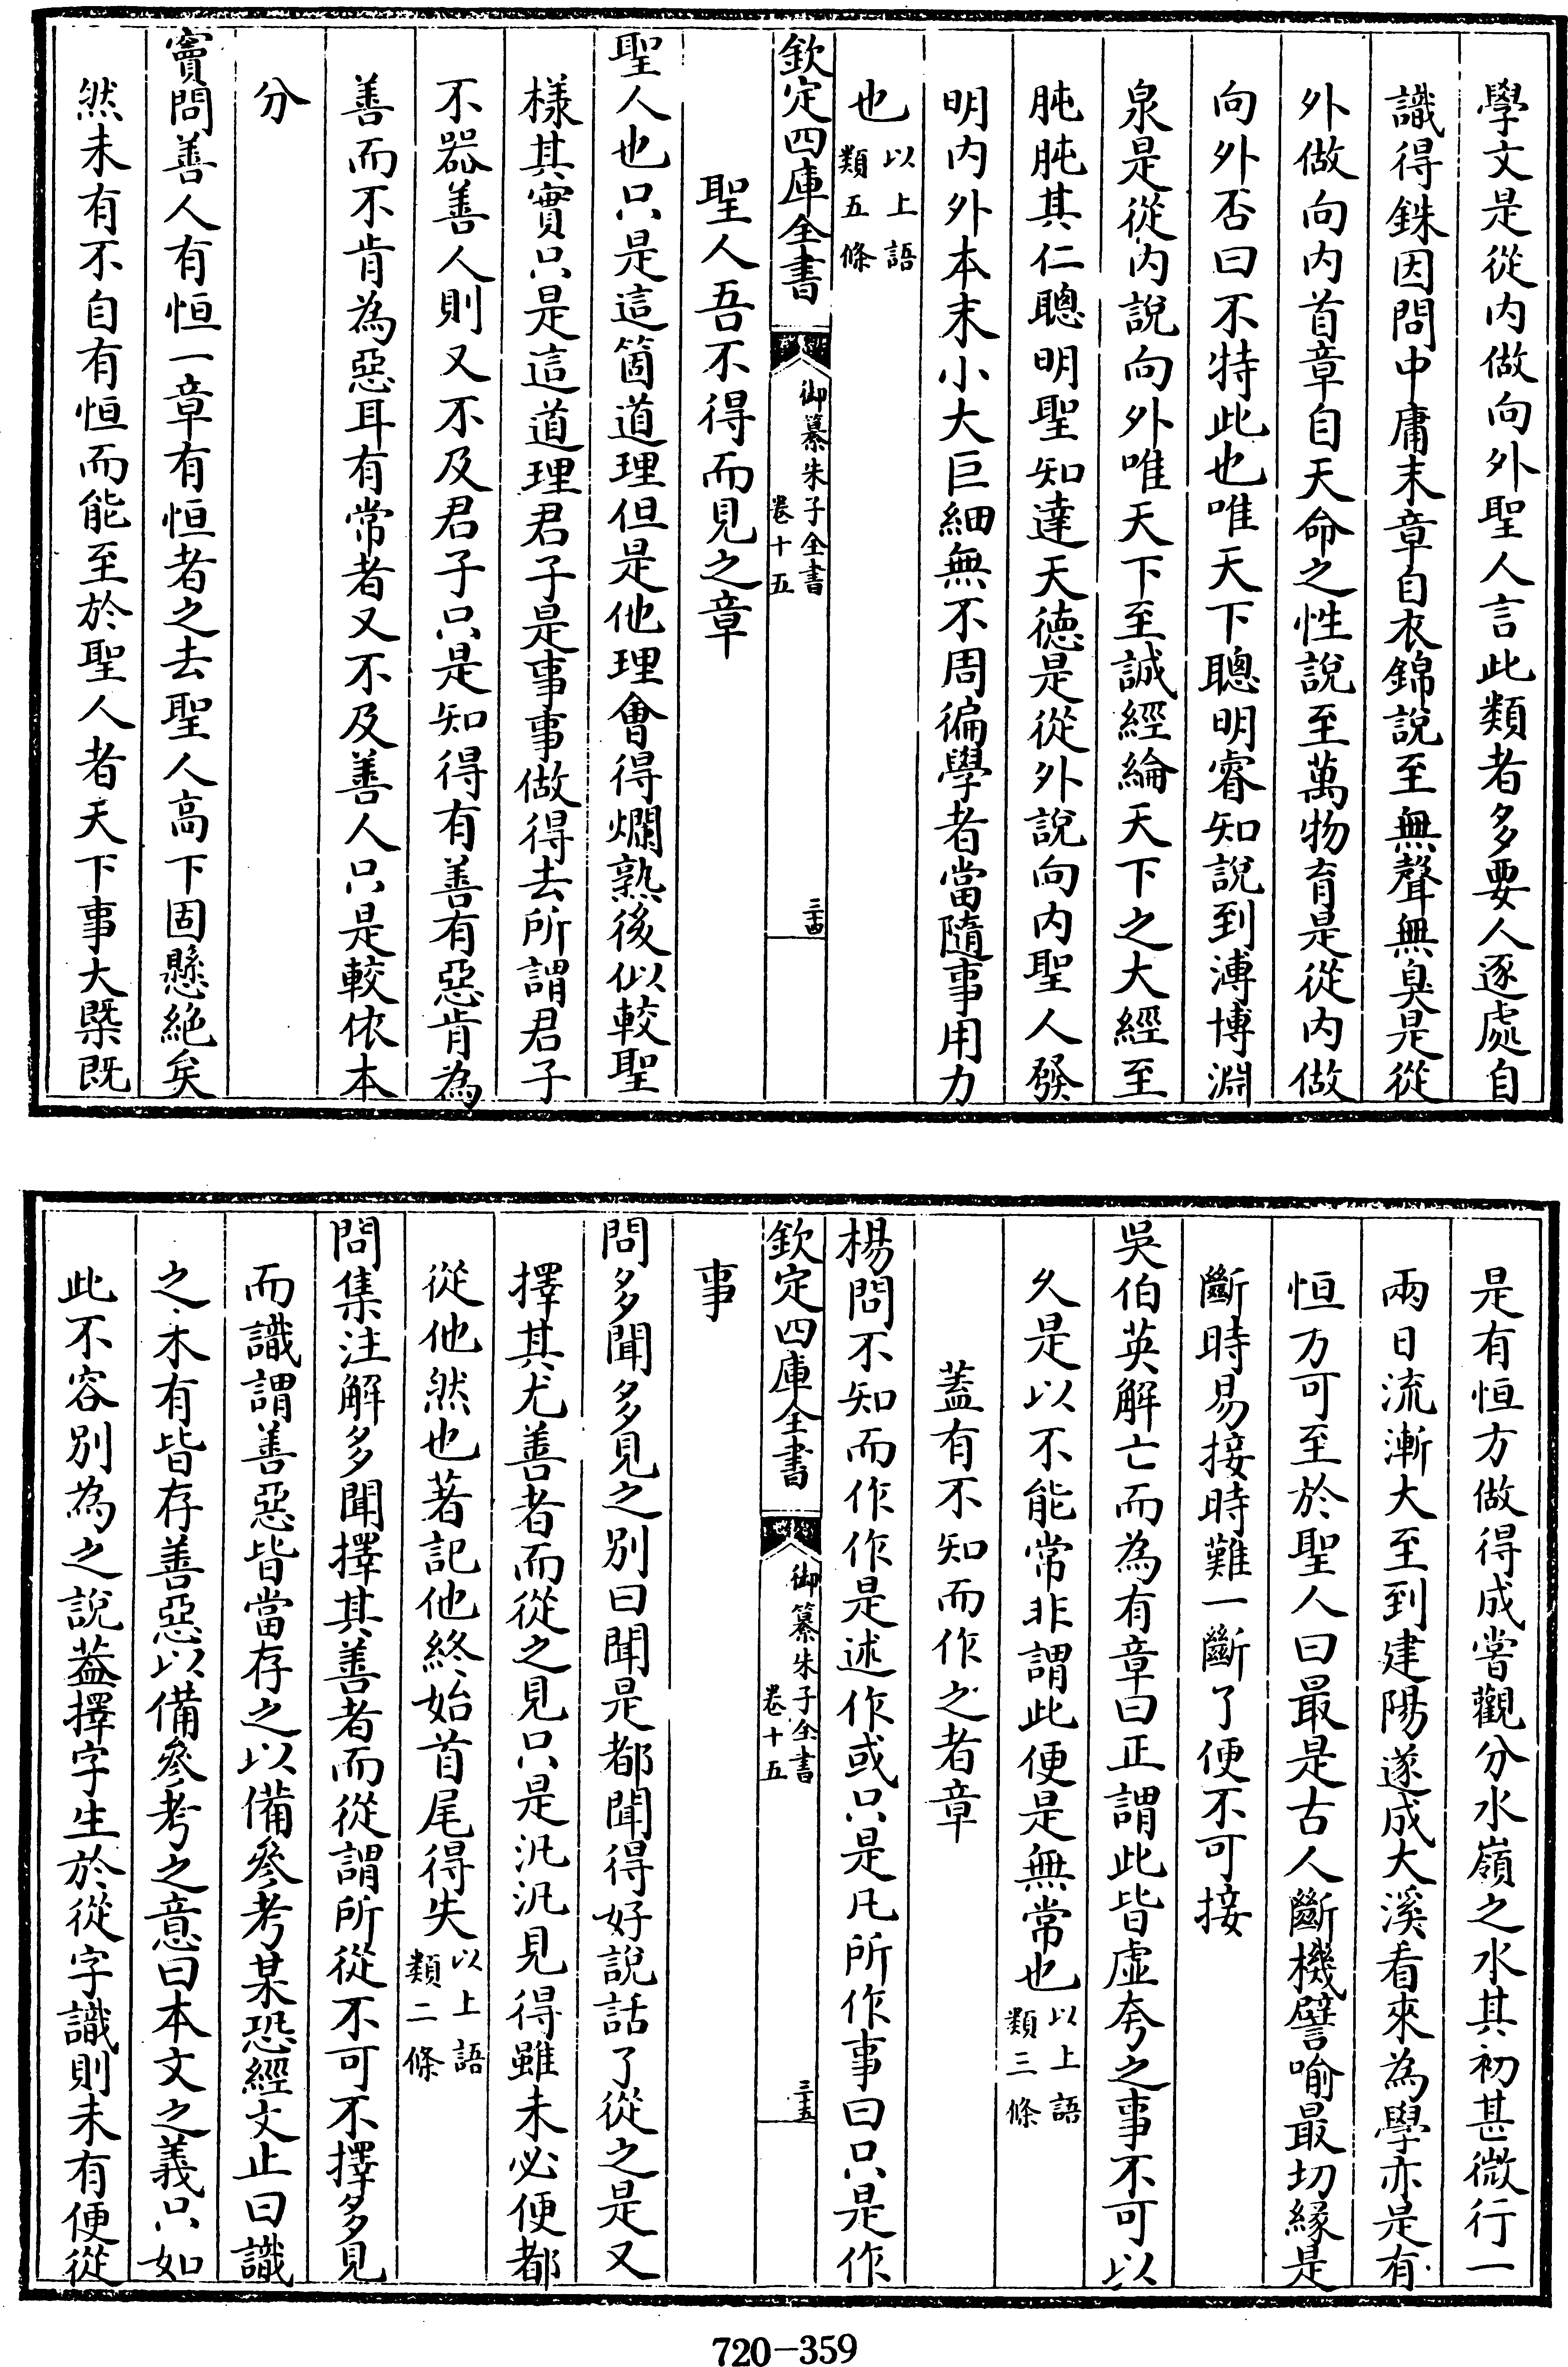 學文是從内做向外聖人言此類者多要人逐處自
識得銖因問中庸末章自衣錦說至無聲無臭是從
外做向内首章自天命之性說至萬物育是從内做
向外否曰不特此也唯天下聰明睿知說到溥博淵
泉是從内說向外唯天下至誠經綸天下之大經至
肫肫其仁聰明聖知達天德是從外說向内聖人發
明内外本末小大巨細無不周徧學者當隨事用力
也以上語類五條
欽定四庫全書 御纂朱子全書 卷十五 三十四
聖人吾不得而見之章
聖人也只是這箇道理但是他理會得爛熟後似較聖
樣其實只是這道理君子是事事做得去所謂君子
不器善人則又不及君子只是知得有善有惡肯為
善而不肯為惡耳有常者又不及善人只是較依本
分
竇問善人有恒一章有恒者之去聖人高下固懸絶矣
然未有不自有恒而能至於聖人者天下事大槩既
是有恒方做得成嘗觀分水嶺之水其初甚微行一
兩日流漸大至到建陽遂成大溪看來為學亦是有
恒方可至於聖人曰最是古人斷機譬喻最切緣是
斷時易接時難一斷了便不可接
吳伯英解亡而為有章曰正謂此皆虚夸之事不可以
久是以不能常非謂此便是無常也以上語類三條
蓋有不知而作之者章
楊問不知而作作是述作或只是凡所作事曰只是作
欽定四庫全書 御纂朱子全書 卷十五 三十五
事
問多聞多見之别曰聞是都聞得好說話了從之是又
擇其尤善者而從之見只是汎汎見得雖未必便都
從他然也著記他終始首尾得失以上語類二條
問集注解多聞擇其善者而從謂所從不可不擇多見
而識謂善惡皆當存之以備參考某恐經文止曰識
之未有皆存善惡以備參考之意曰本文之義只如
此不容别為之說蓋擇字生於從字識則未有便從
720-359